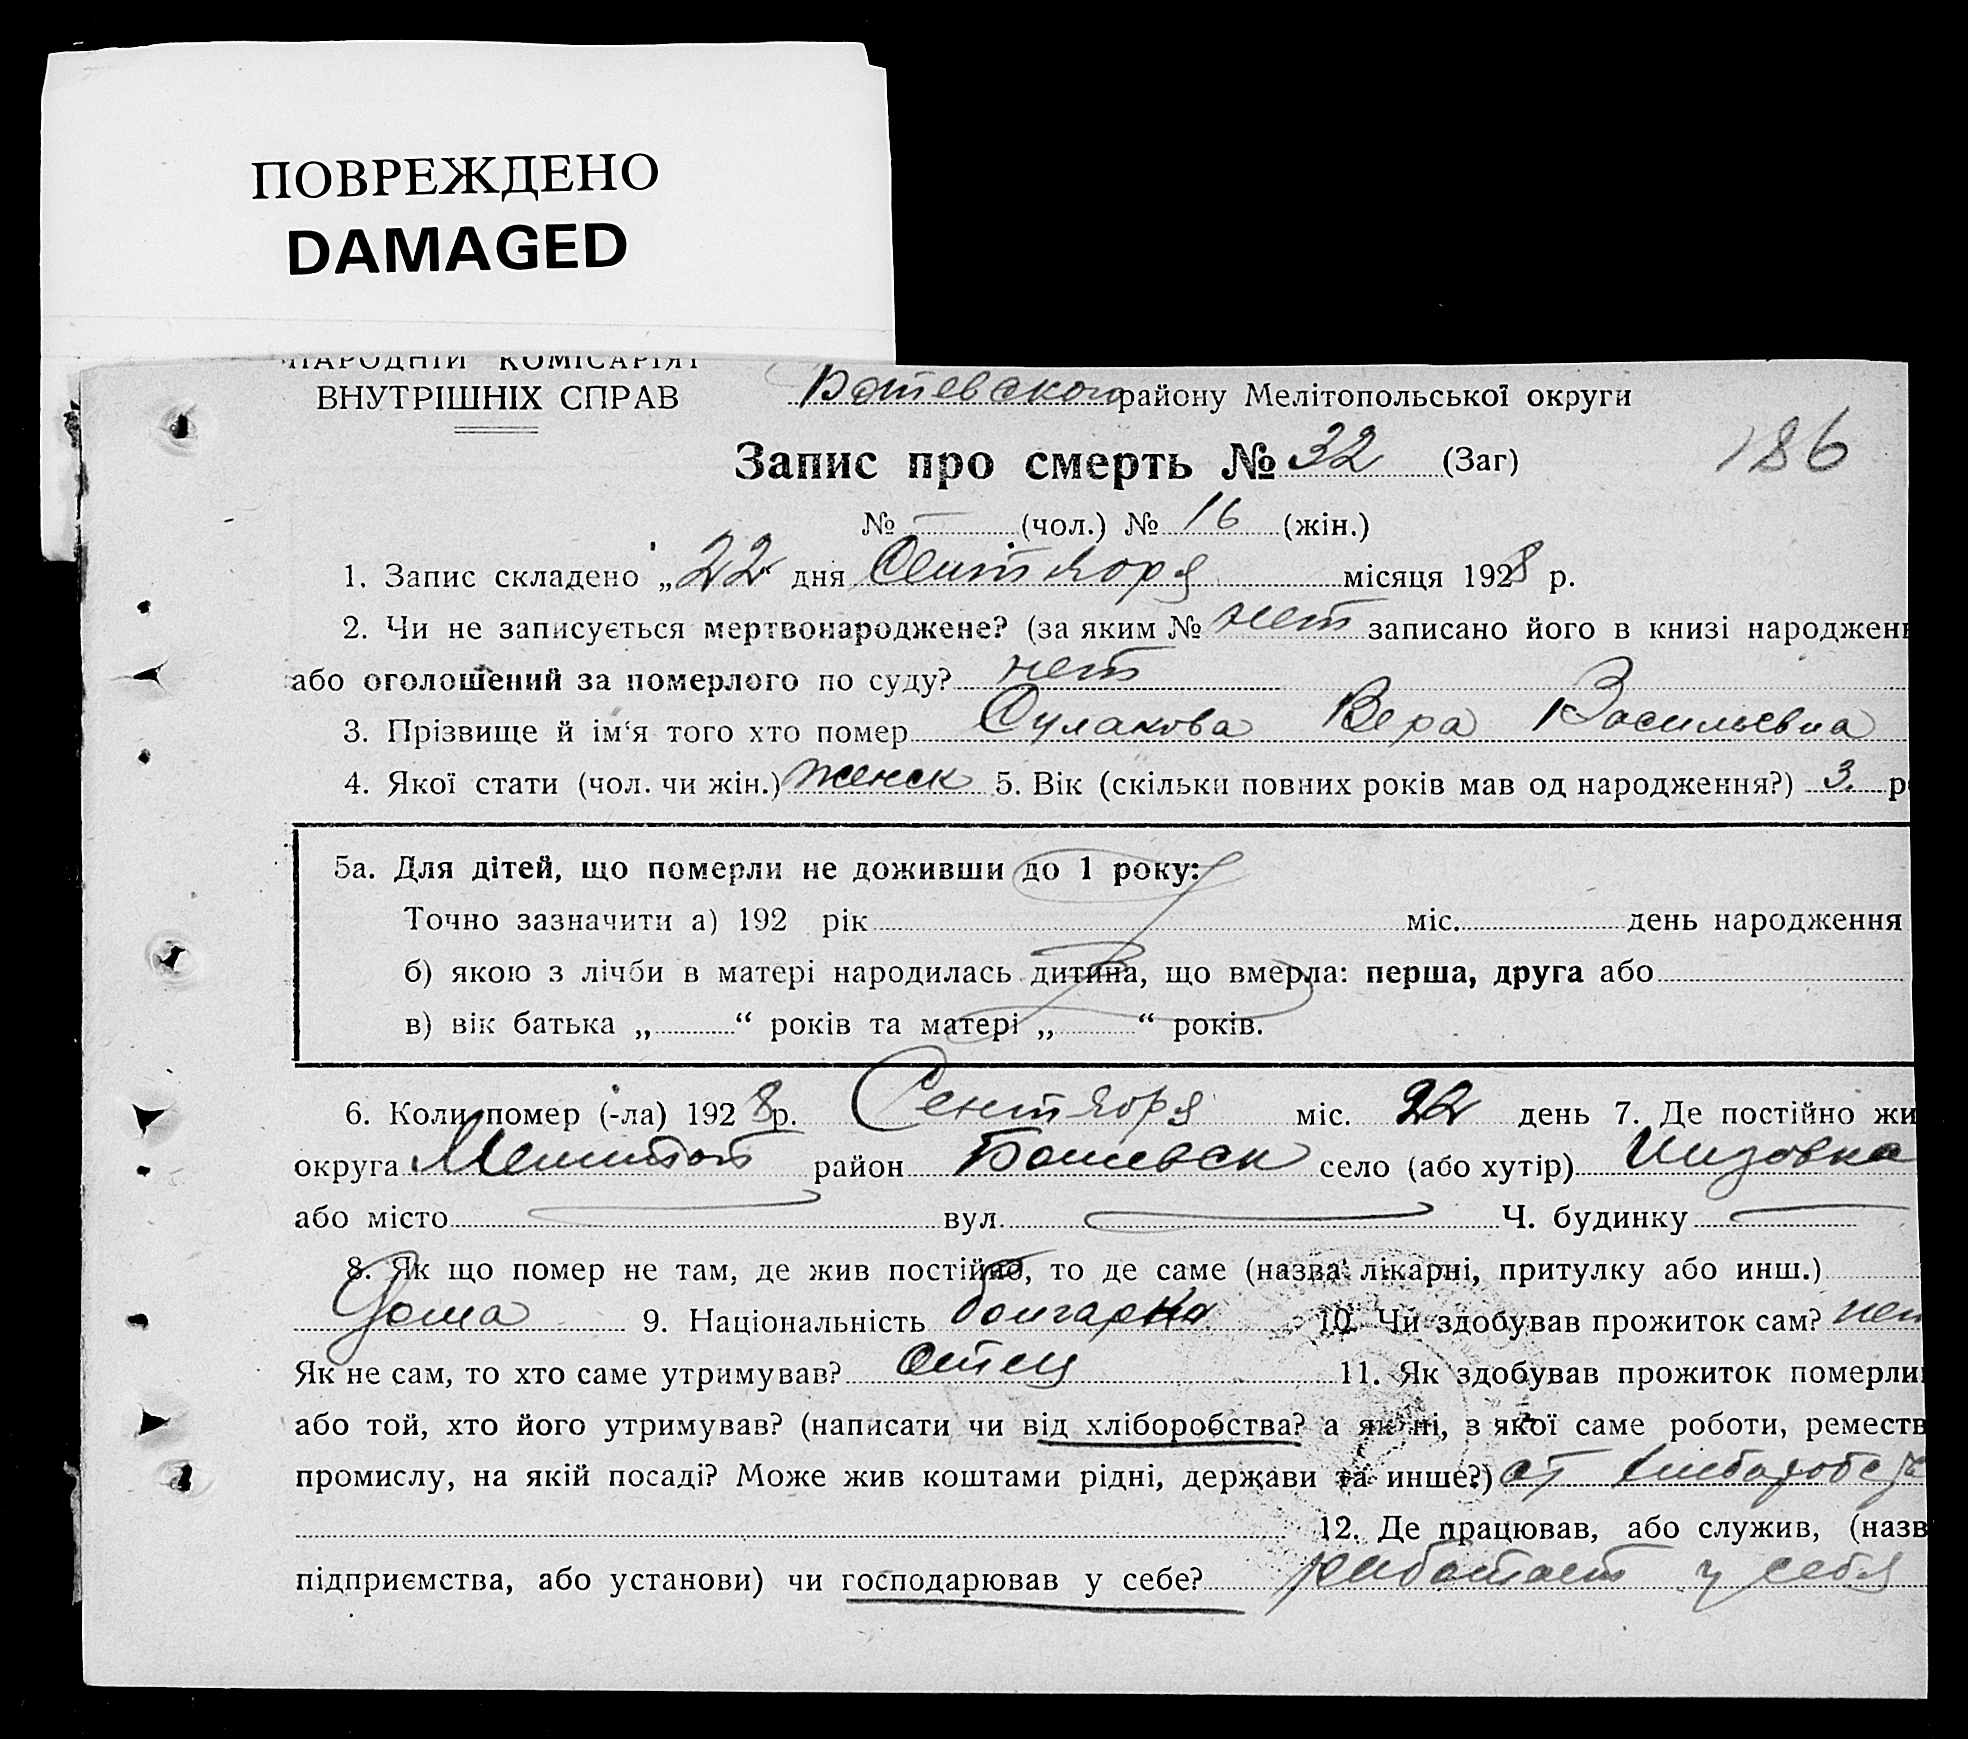 ПОВРЕЖДЕНО
DAMAGED
НАРОДНІЙ КОМІСАРІЯТ
ВНУТРІШНІХ СПРАВ
Ботевского району Мелітопольської округи
Запис про смерть № 32 (Заг)
186
№ — (чол.) № 16 (жін.)
1. Запис складено „22“ дня Сентября місяця 1928 р.
2. Чи не записується мертвонароджене? (за яким № нет записано його в книзі народжен
або оголошений за померлого по суду? нет
3. Прізвище й ім‘я того хто помер Сулакова Вера Васильевна
4. Якої стати (чол. чи жін.) женск 5. Вік (скільки повних років мав од народження?) 3. р
5а. Для дітей, що померли не доживши до 1 року:
Точно зазначити а) 192 рік міс. день народження
б) якою з лічби в матері народилась дитина, що вмерла: перша, друга або
в) вік батька „ “ років та матері „ “ років.
6. Коли помер (-ла) 1928 р. Сентября міс. 22 день 7. Де постійно жи
округа Мелитоп район Ботевск село (або хутір)
або місто — вул. — Ч. будинку —
8. Як що помер не там, де жив постійно, то де саме (назва лікарні, притулку або инш.)
Дома 9. Національність болгарка 10. Чи здобував прожиток сам? нет
Як не сам, то хто саме утримував? Отец 11. Як здобував прожиток померли
або той, хто його утримував? (написати чи від хліборобства? а як ні, з якої саме роботи, реместв
промислу, на якій посаді? Може жив коштами рідні, держави та инше?) от
12. Де працював, або служив, (назв
підприємства, або установи) чи господарював у себе? работает у себя